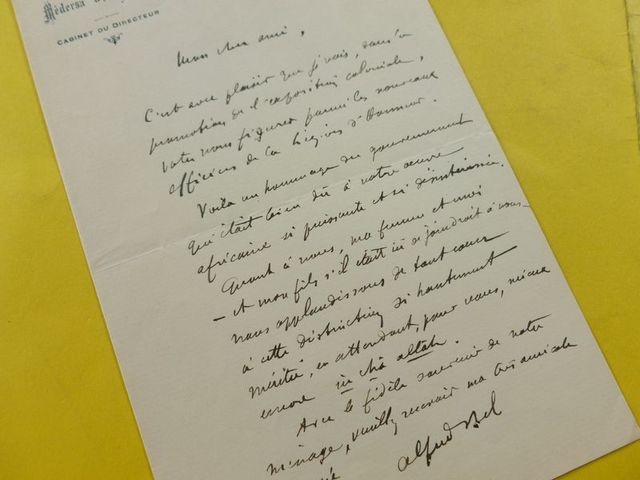 Médersa
CABINET DU DIRECTEUR
Mon cher ami,
C'est avec plaisir que je vois, dans la
promotion de l'exposition coloniale,
votre nom figurer parmi les nouveaux
officiers de la Légion d'Honneur.
Voilà un hommage du gouvernement
qui était bien dû à votre œuvre
africaine si puissante et si désintéressée.
Quant à nous, ma femme et moi
– et mon fils s'il était ici se joindrait à nous –
nous applaudissons de tout cœur
à cette distinction si hautement
méritée, en attendant, pour vous, mieux
encore in châ allah.
Avec le fidèle souvenir de notre
ménage, veuillez recevoir ma très amicale
Alfred Bel